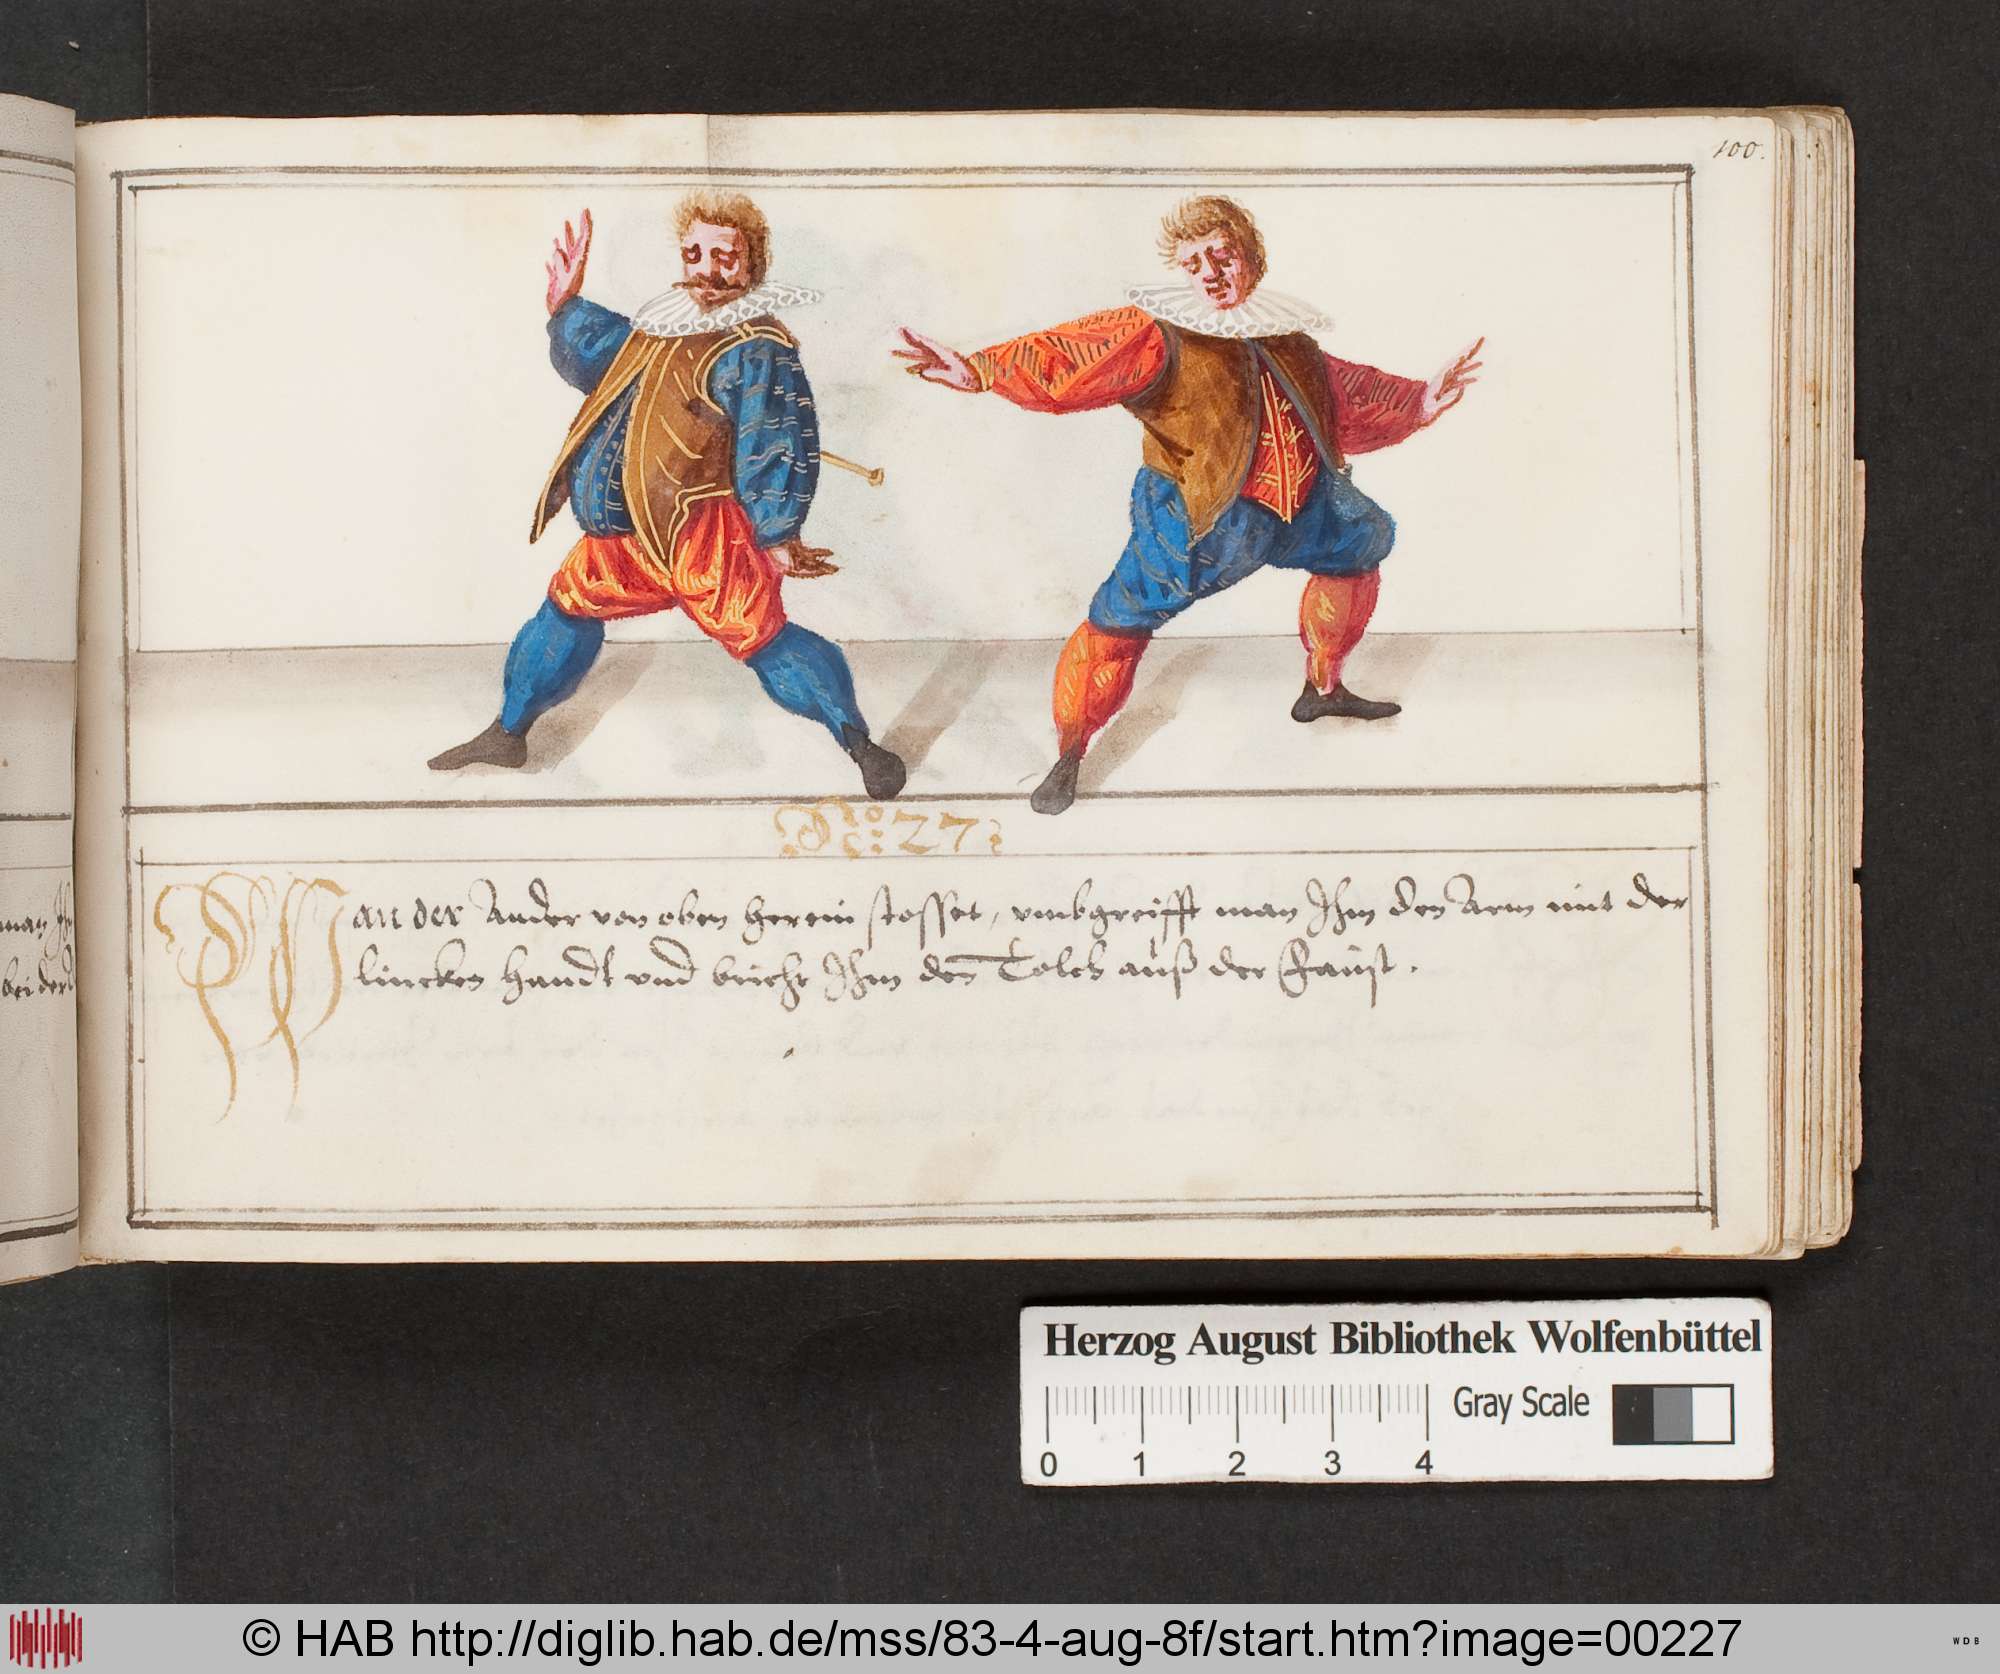 100.
No: 27:
Wan der Ander von oben herein stosset, vmbgreifft man Ihm den Arm mit der
lincken Handt vnd bricht Ihm den Tolch auß der Faust.
man Ih
bei der l
Herzog August Bibliothek Wolfenbüttel
Gray Scale
0 1 2 3 4
© HAB http://diglib.hab.de/mss/83-4-aug-8f/start.htm?image=00227
WDB